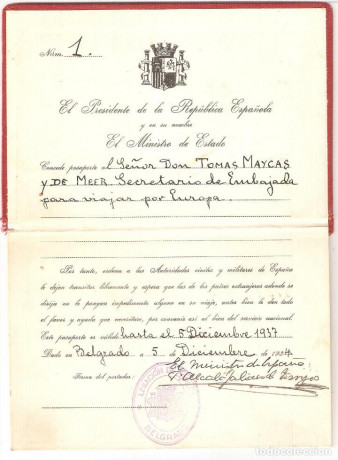 Núm. 1.
El Presidente de la República Española
y en su nombre
El Ministro de Estado
Concede pasaporte al Señor Don TOMAS MAYCAS
y DE MEER, Secretario de Embajada
para viajar por Europa.
Por tanto, ordena a las Autoridades civiles y militares de España
le dejen transitar libremente y espera que las de los países extranjeros adonde se
dirija no le pongan impedimento alguno en su viaje, antes bien le den todo
el favor y ayuda que necesitare, por convenir así al bien del servicio nacional.
Este pasaporte es válido hasta el 5 Diciembre 1937
Dado en Belgrado a 5 de Diciembre de 1934
El Ministro de España:
Firma del portador:
LEGACIÓN
BELGRADO
todocoleccion